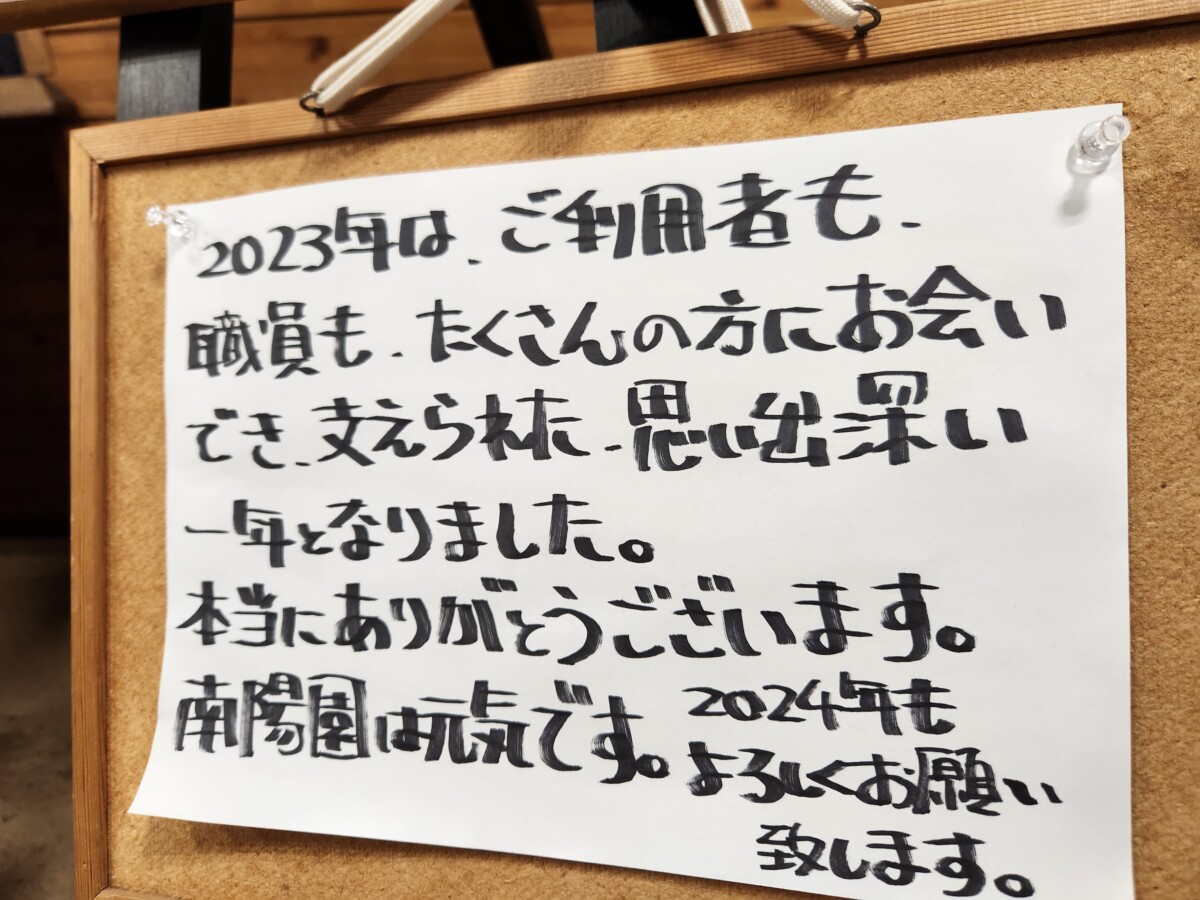 2023年は、ご利用者も、
職員も、たくさんの方にお会い
でき、支えられた、思い出深い
一年となりました。
本当にありがとうございます。
南陽園は元気です。2024年も
よろしくお願い
致します。